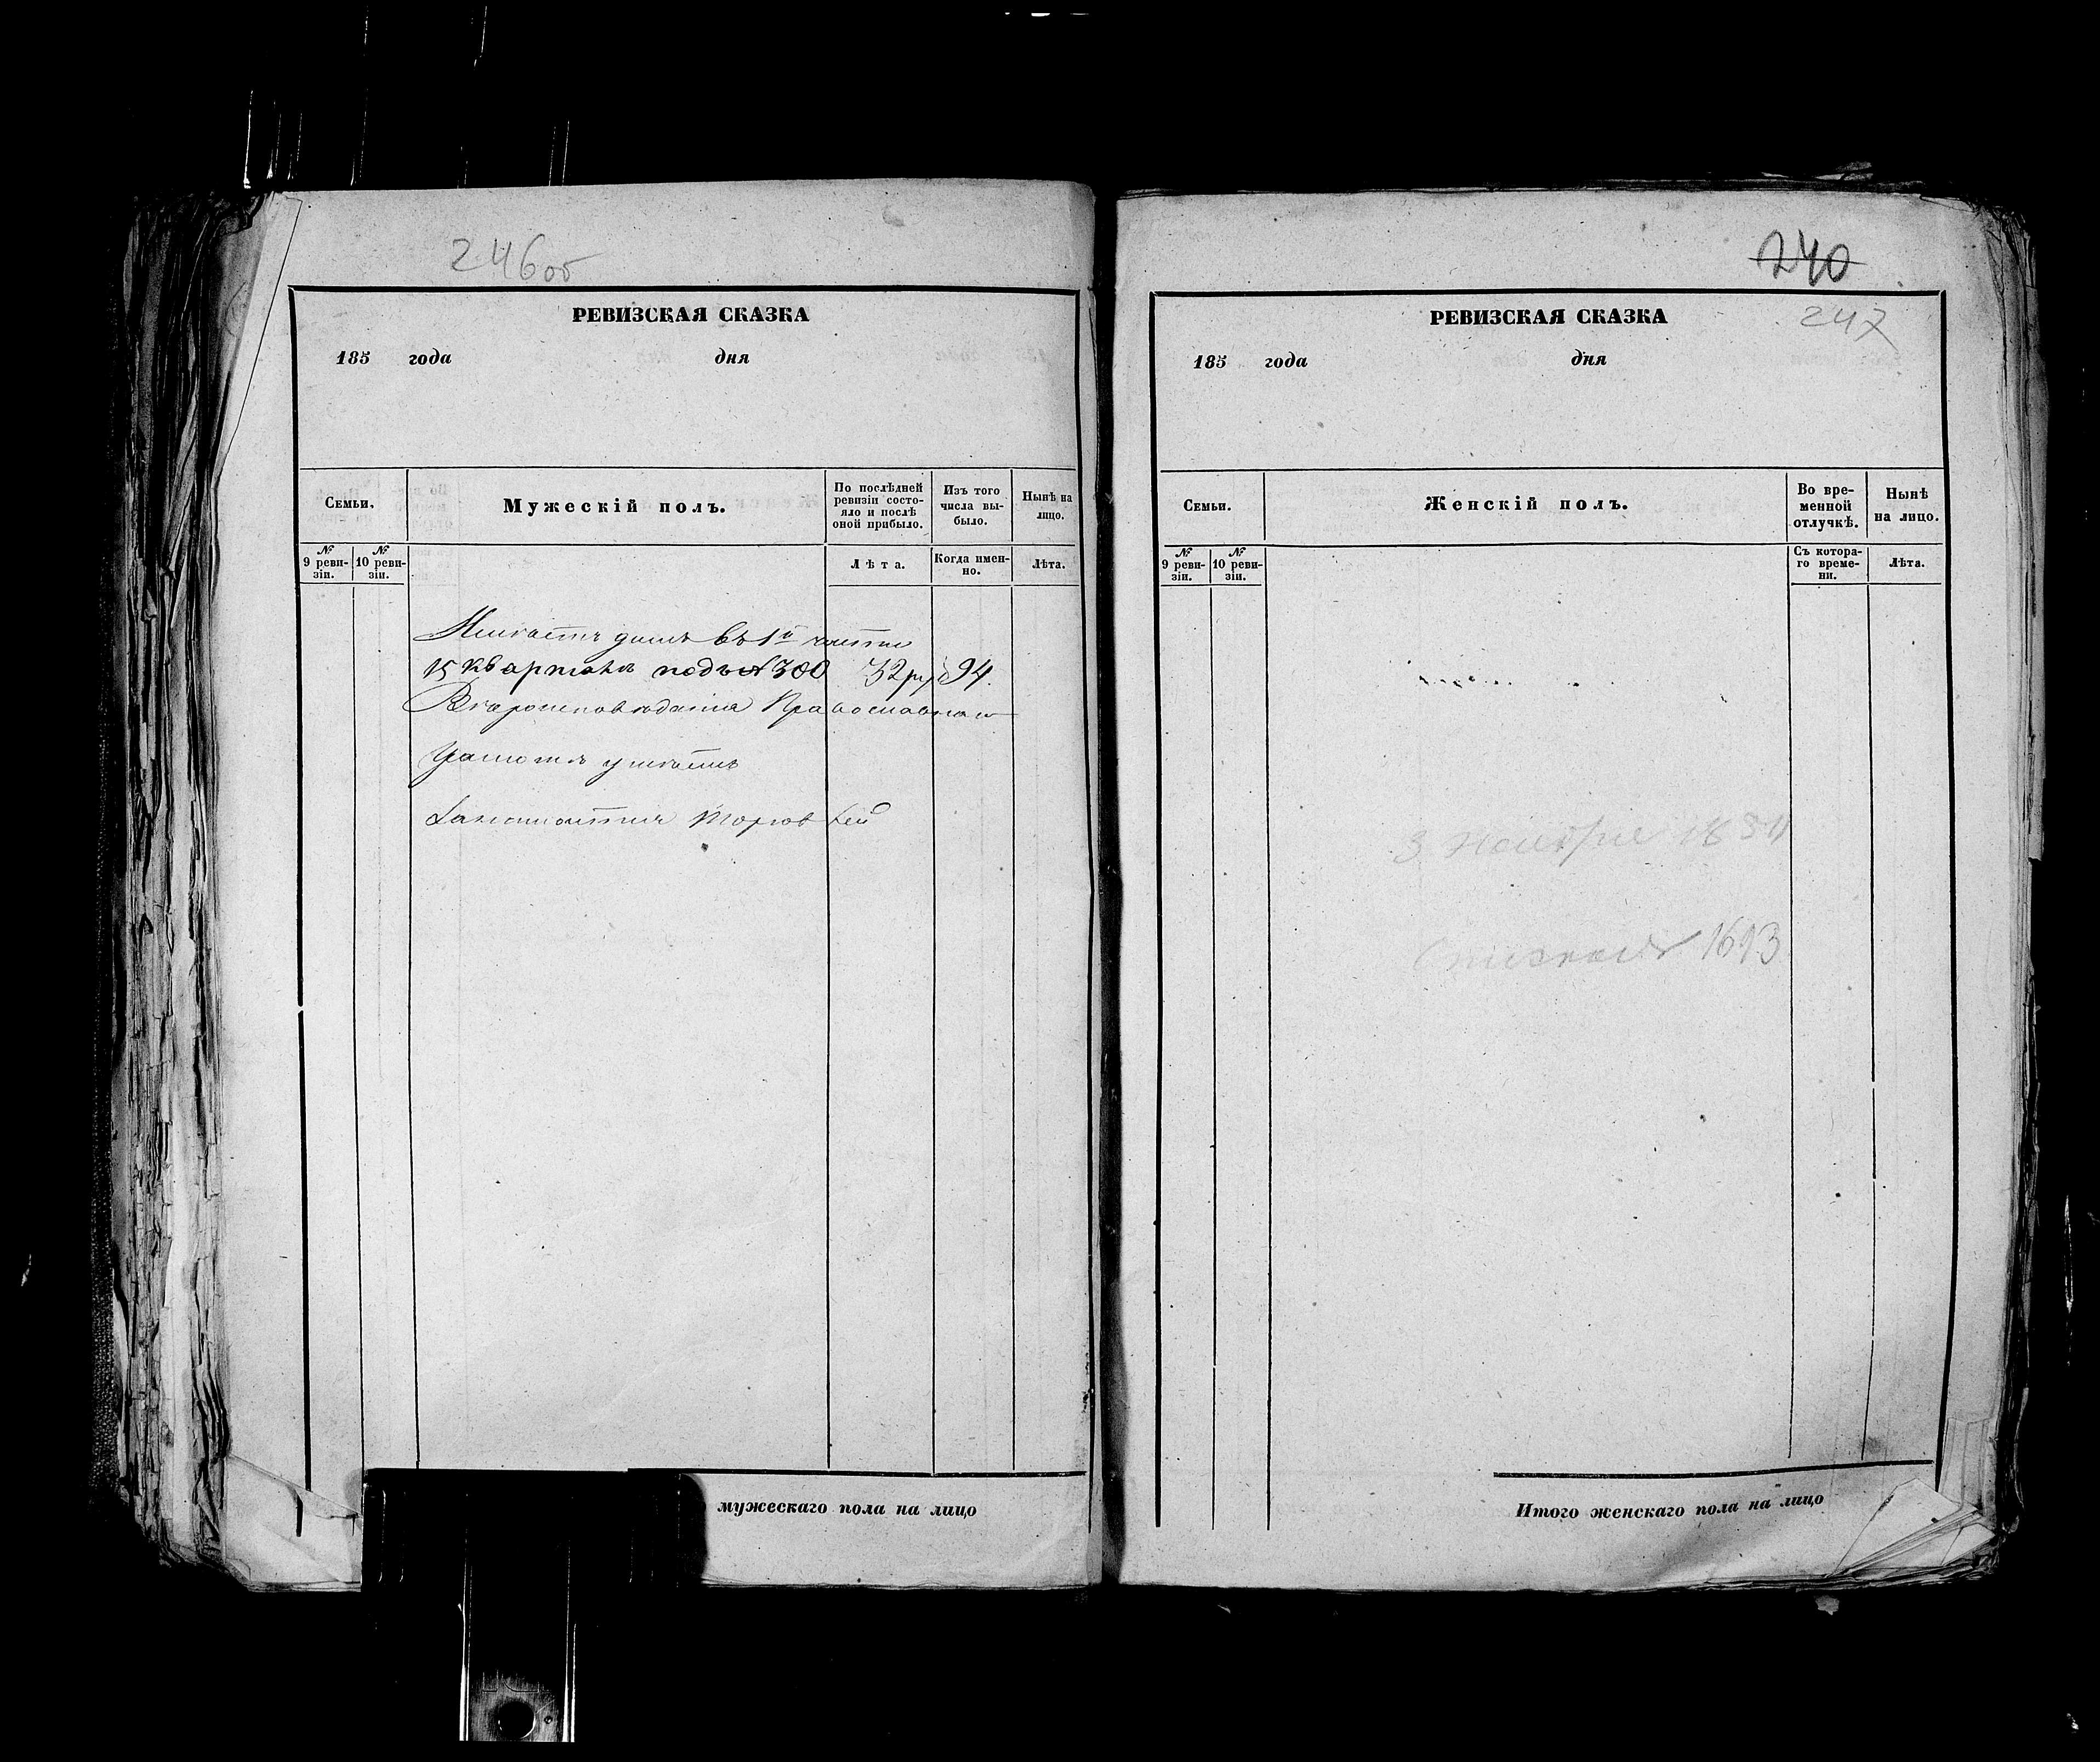 246об
РЕВИЗСКАЯ СКАЗКА
185 года дня
Семьи.
Мужескій полъ.
По послѣдней ревизіи состояло и послѣ оной прибыло.
Изъ того числа выбыло.
Нынѣ на лицо.
№ 9 ревизіи.
№ 10 ревизіи.
Лѣта.
Когда именно.
Лѣта.
Имѣетъ домъ въ 1й части
15 кварталѣ подъ № 300 32 ру 94
Вѣроисповѣданія Православнаго
Грамотѣ умѣетъ
Занимается торговлей
мужескаго пола на лицо
240
247
РЕВИЗСКАЯ СКАЗКА
185 года дня
Семьи.
Женскій полъ.
Во временной отлучкѣ.
Нынѣ на лицо.
№ 9 ревизіи.
№ 10 ревизіи.
Съ котораго времени.
Лѣта.
3 Ноября
1613
Итого женскаго пола на лицо